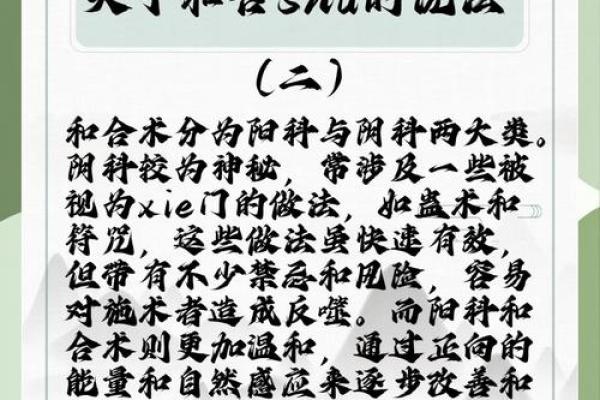 关于和合shu的说法
(二)
和合术分为阳科与阴科两大类。
阴科较为神秘，常涉及一些被
视为xie门的做法，如蛊术和
符咒，这些做法虽快速有效，
但带有不少禁忌和风险，容易
对施术者造成反噬。而阳科和
合术则更加温和，通过正向的
能量和自然感应来逐步改善和